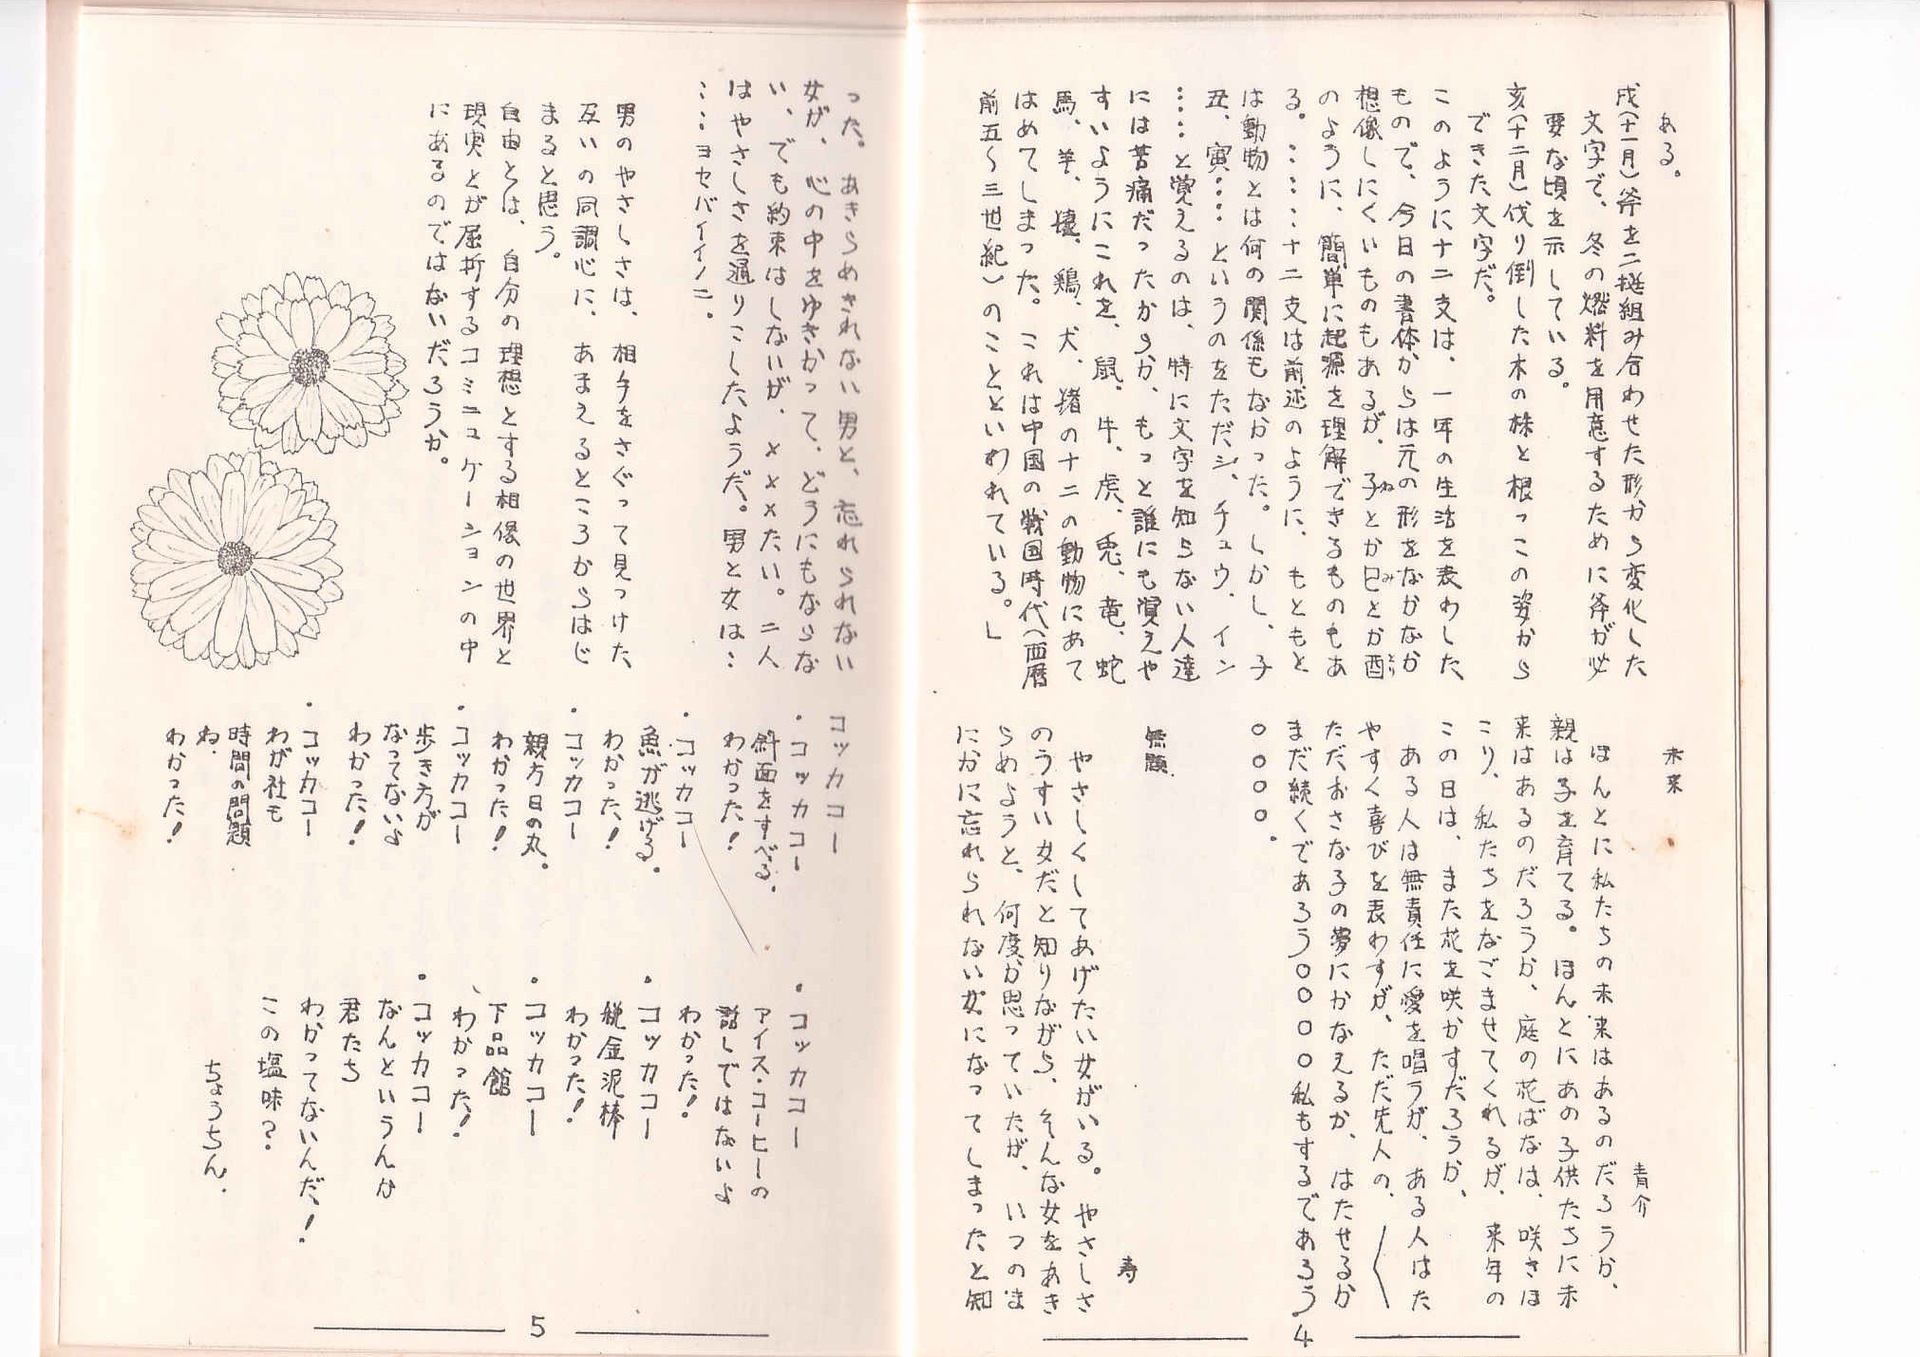 ある。
戌(十一月)斧を二挺組み合わせた形から変化した
文字で、冬の燃料を用意するために斧が必
要な頃を示している。
亥(十二月)伐り倒した木の株と根っこの姿から
できた文字だ。
このように十二支は、一年の生活を表わした、
もので、今日の書体からは元の形をなかなか
想像しにくいものもあるが、子とか巳とか酉
ね
み
とり
のように、簡単に起源を理解できるものもあ
る。……十二支は前述のように、もともと
は動物とは何の関係もなかった。しかし、子
丑、寅……というのをただシ、チュウ、イン
……と覚えるのは、特に文字を知らない人達
には苦痛だったからか、もっと誰にも覚えや
すいようにこれを、鼠、牛、虎、兎、竜、蛇
馬、羊、猿、鶏、犬、猪の十二の動物にあて
はめてしまった。これは中国の戦国時代(西暦
前五〜三世紀)のことといわれている。」
未来
青介
ほんとに私たちの未来はあるのだろうか、
親は子を育てる。ほんとにあの子供たちに未
来はあるのだろうか、庭の花ばなは、咲きほ
こり、私たちをなごませてくれるが、来年の
この日は、また花を咲かすだろうか、
ある人は無責任に愛を唱うが、ある人はた
やすく喜びを表わすが、ただ先人の、
ただおさな子の夢にかなえるか、はたせるか
まだ続くであろう○○○○私もするであろう
○○○○。
無題
寿
やさしくしてあげたい女がいる。やさしさ
のうすい女だと知りながら、そんな女をあき
らめようと、何度か思っていたが、いつのま
にかに忘れられない女になってしまったと知
4
った。あきらめきれない男と、忘れられない
女が、心の中をゆきかって、どうにもならな
い、でも約束はしないが、×××たい。二人
はやさしさを通りこしたようだ。男と女は…
……ヨセバイイノニ。
男のやさしさは、相手をさぐって見つけた、
互いの同調心に、あまえるところからはじ
まると思う。
自由とは、自分の理想とする想像の世界と
現実とが屈折するコミニュケーションの中
にあるのではないだろうか。
コッカコー
・コッカコー
斜面をすべる、
わかった!
・コッカコー
魚が逃げる。
わかった!
・コッカコー
親方日の丸。
わかった!
・コッカコー
歩き方が
なってないよ
わかった!
・コッカコー
わが社も
時間の問題
ね、
わかった!
・コッカコー
アイス・コーヒーの
話しではないよ
わかった!
・コッカコー
税金泥棒
わかった!
・コッカコー
下品館
わかった!
・コッカコー
なんというんか
君たち
わかってないんだ!
この塩味?
ちょうちん.
5